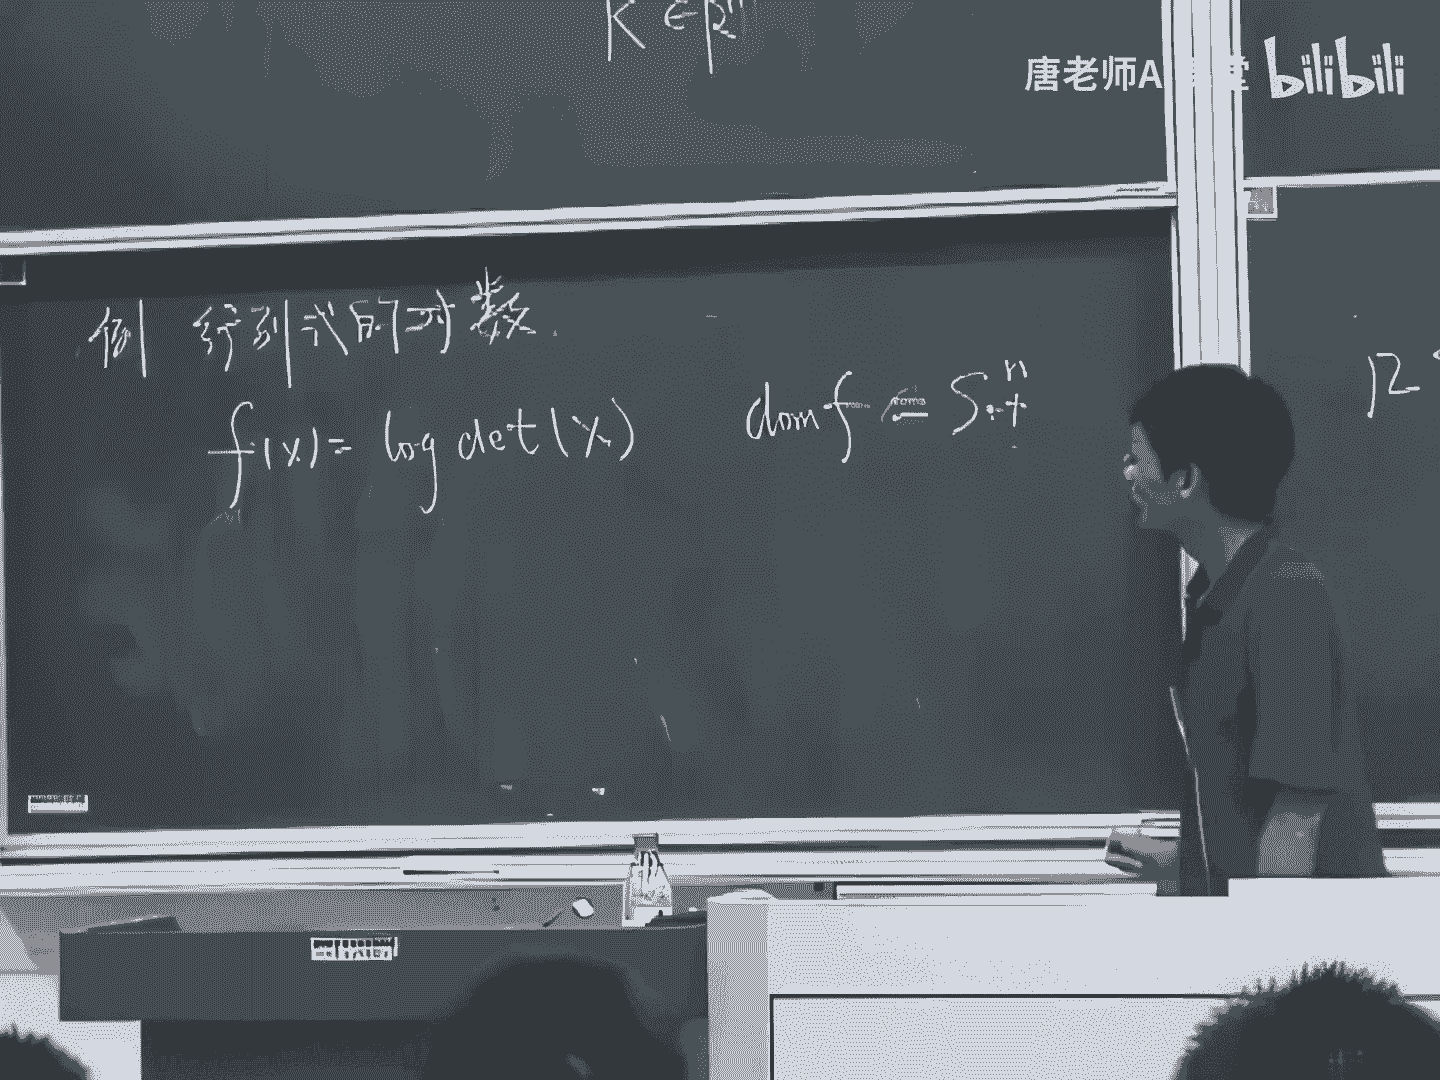 K ∈ R^n
唐老师A 堂 bilibili
例 行列式的对数
f(x) = log det(X) dom f = S_{++}^n
R